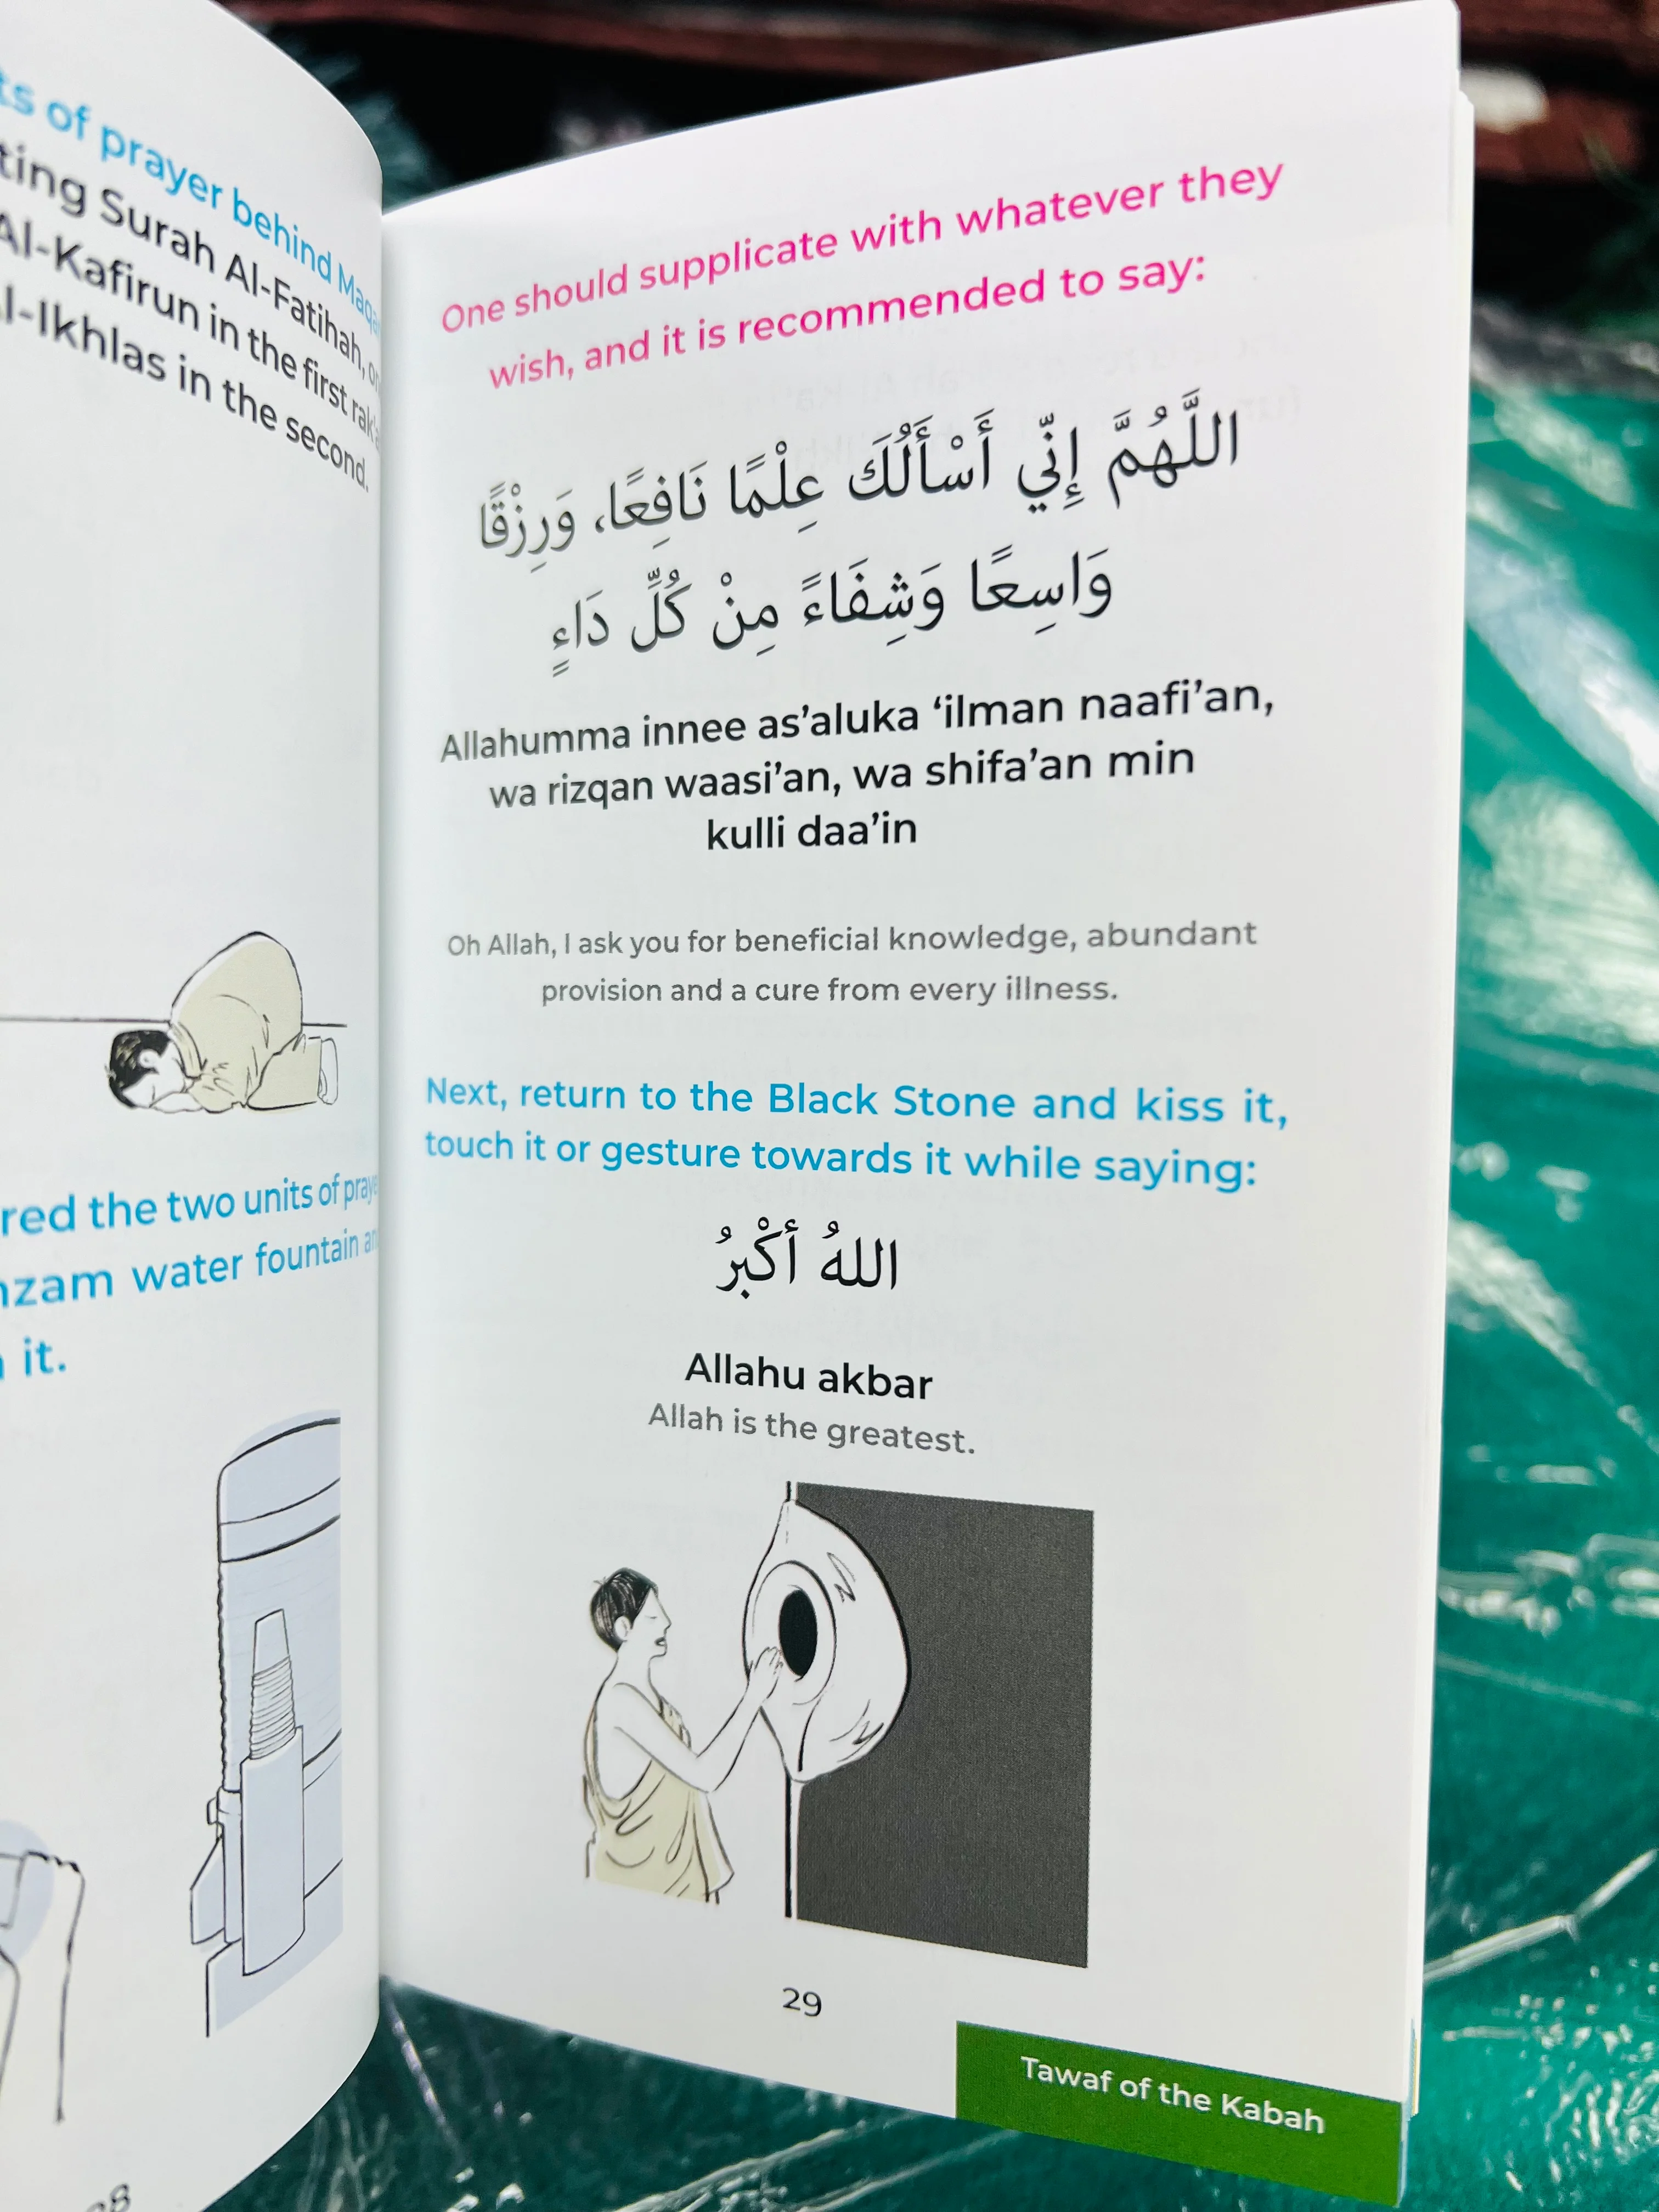 ts of prayer behind
ting Surah Al-Fatihah,
Al-Kafirun in the first
Al-Ikhlas in the second.
red the two units of
nzam water fountain
it.
One should supplicate with whatever they
wish, and it is recommended to say:
اللَّهُمَّ إِنِّي أَسْأَلُكَ عِلْمًا نَافِعًا، وَرِزْقًا
وَاسِعًا وَشِفَاءً مِنْ كُلِّ دَاءٍ
Allahumma innee as’aluka ‘ilman naafi’an,
wa rizqan waasi’an, wa shifa’an min
kulli daa’in
Oh Allah, I ask you for beneficial knowledge, abundant
provision and a cure from every illness.
Next, return to the Black Stone and kiss it,
touch it or gesture towards it while saying:
اللهُ أَكْبَرُ
Allahu akbar
Allah is the greatest.
29
Tawaf of the Kabah